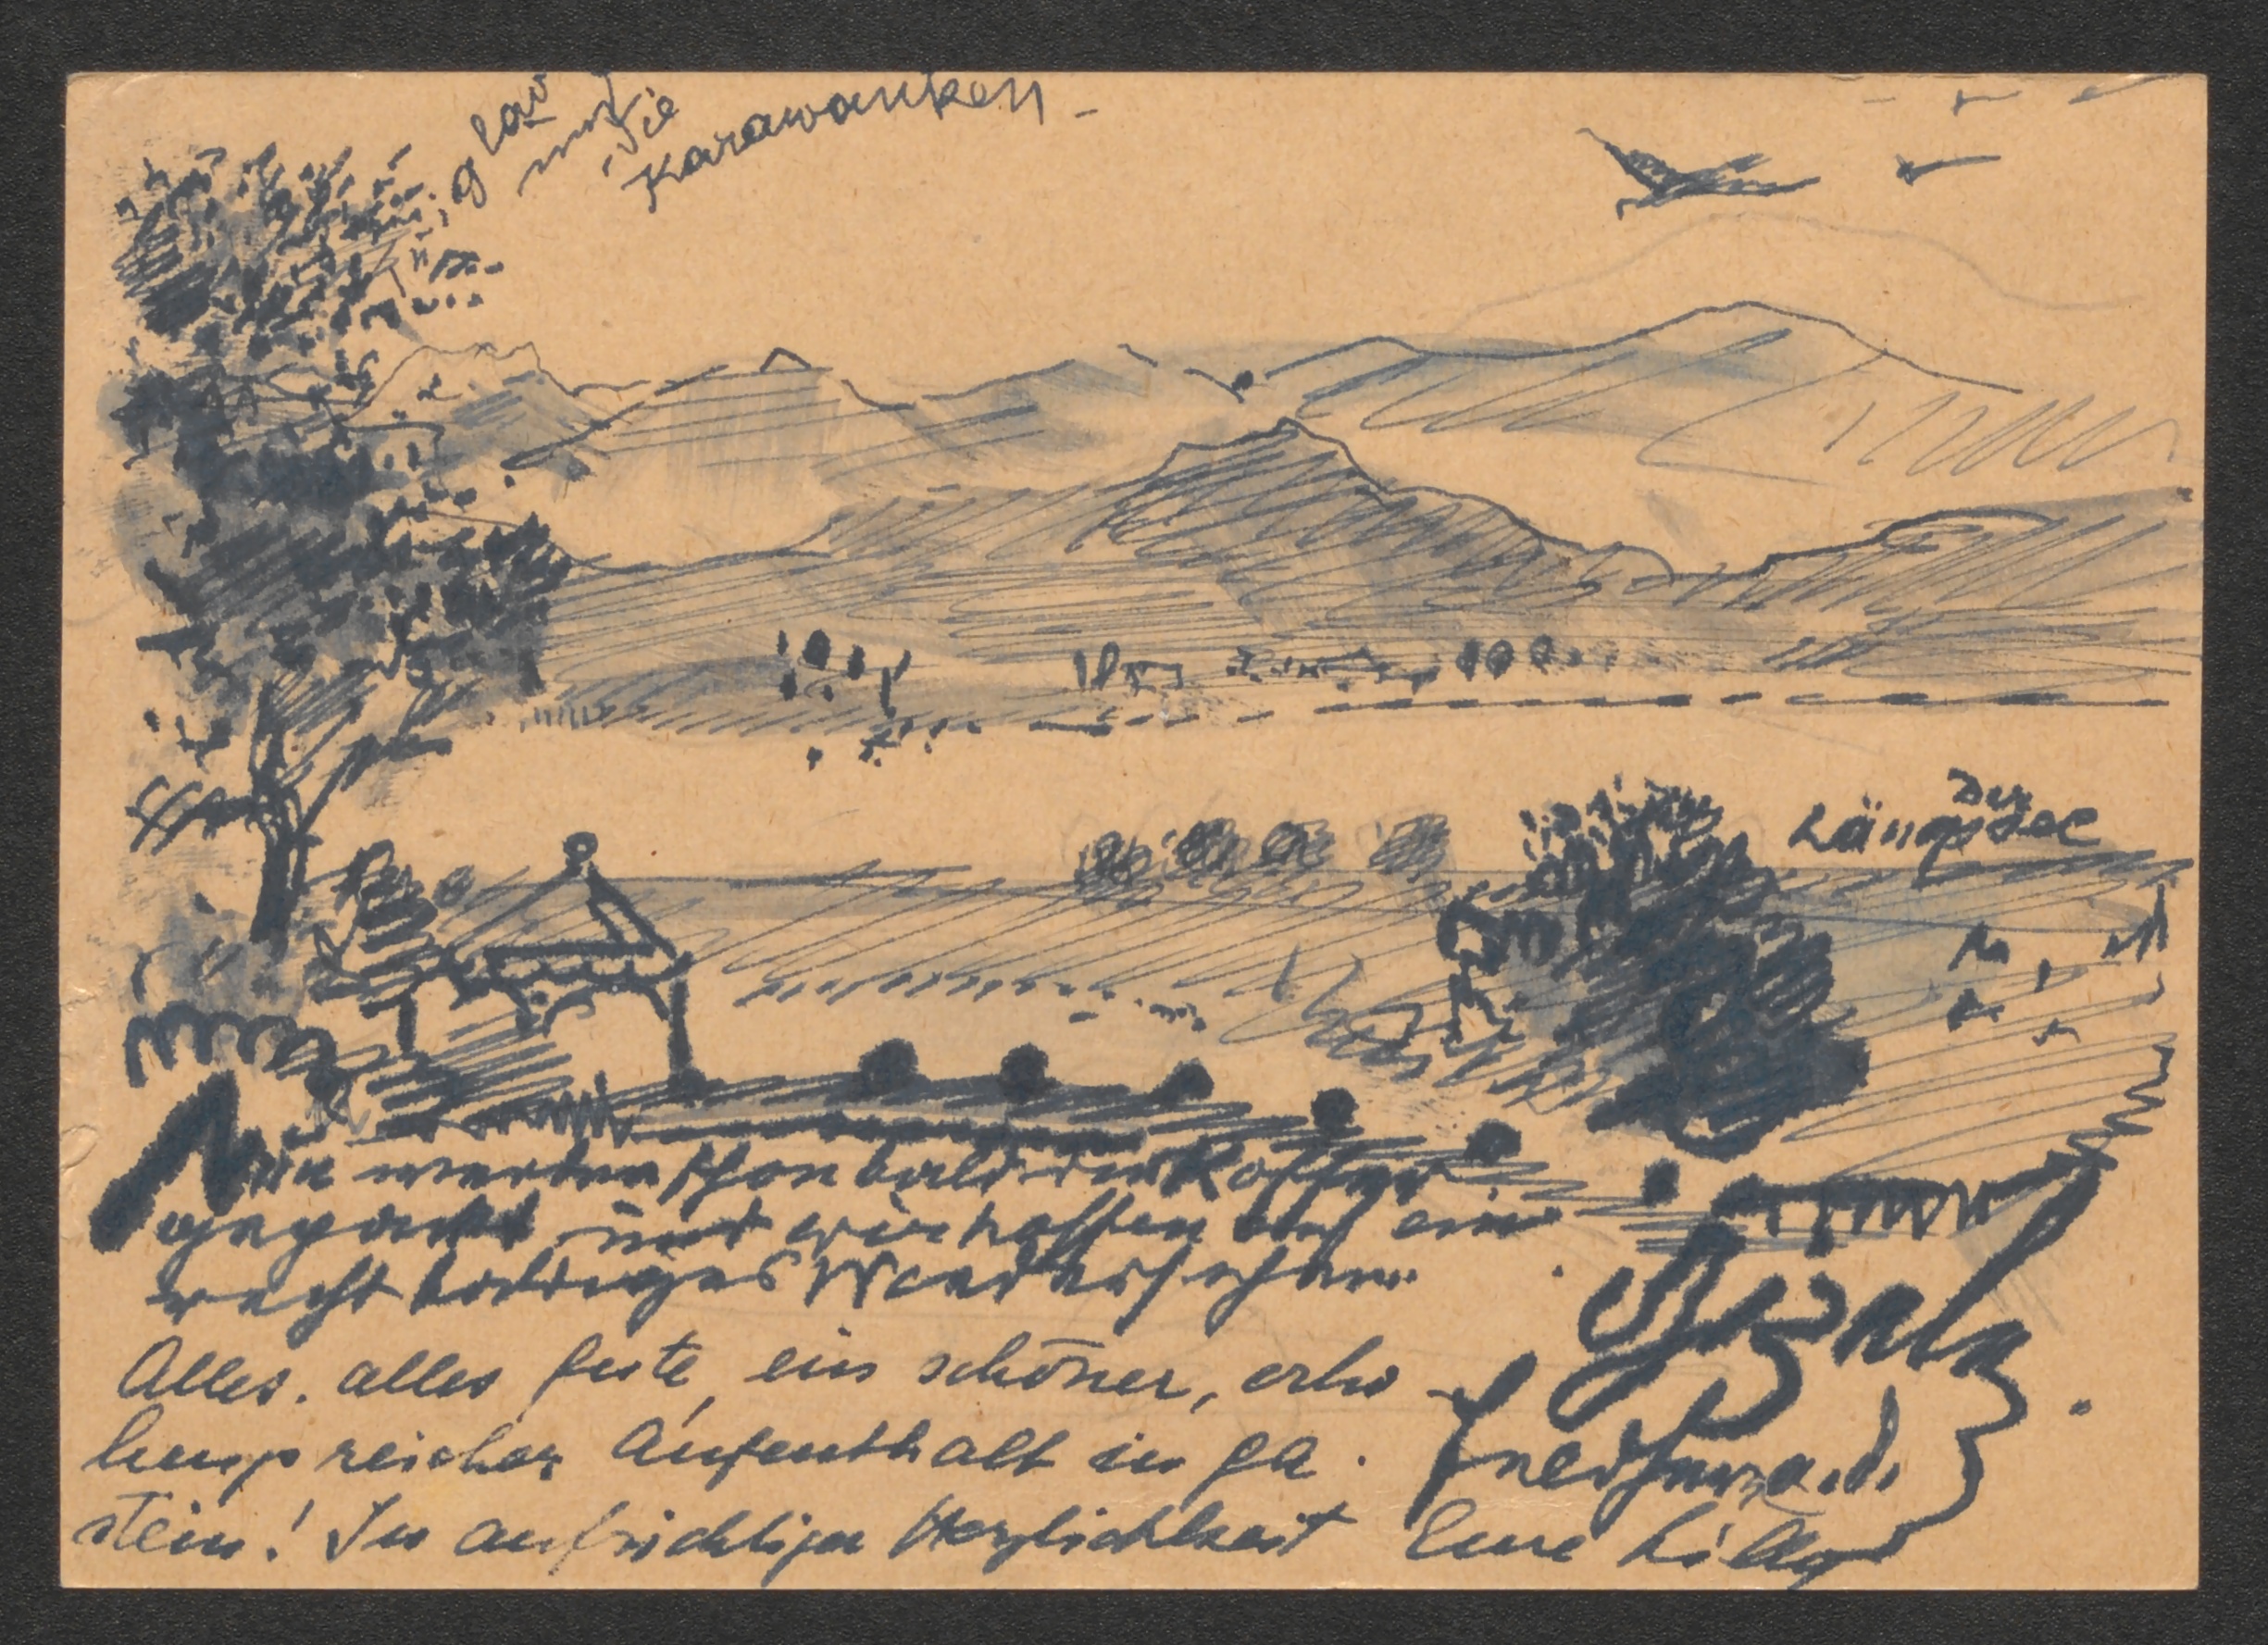 blau
und
die
Karawanken -
Der
Längsee
Nun werden schon bald die Koffer
gepackt und wir hoffen auf ein
recht baldiges Wiedersehen.
Alles, alles Gute, ein schöner, erho
lungsreicher Aufenthalt in Ga
stein! In aufrichtiger Herzlichkeit Eure Lilly